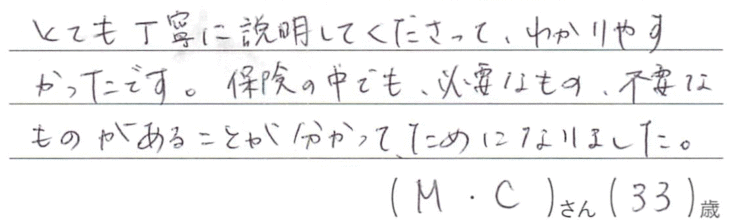 とても丁寧に説明してくださって、わかりやす
かったです。保険の中でも、必要なもの、不要な
ものがあることが分かって、ためになりました。
(M・C)さん(33)歳